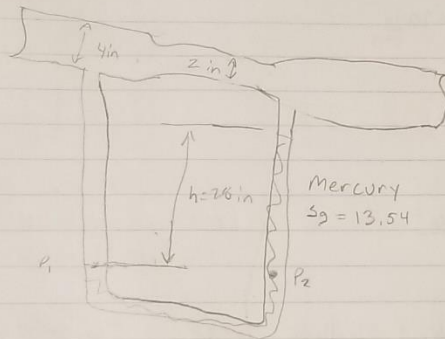 4in
2 in
h=28in
Mercury
Sg = 13.54
P1
P2